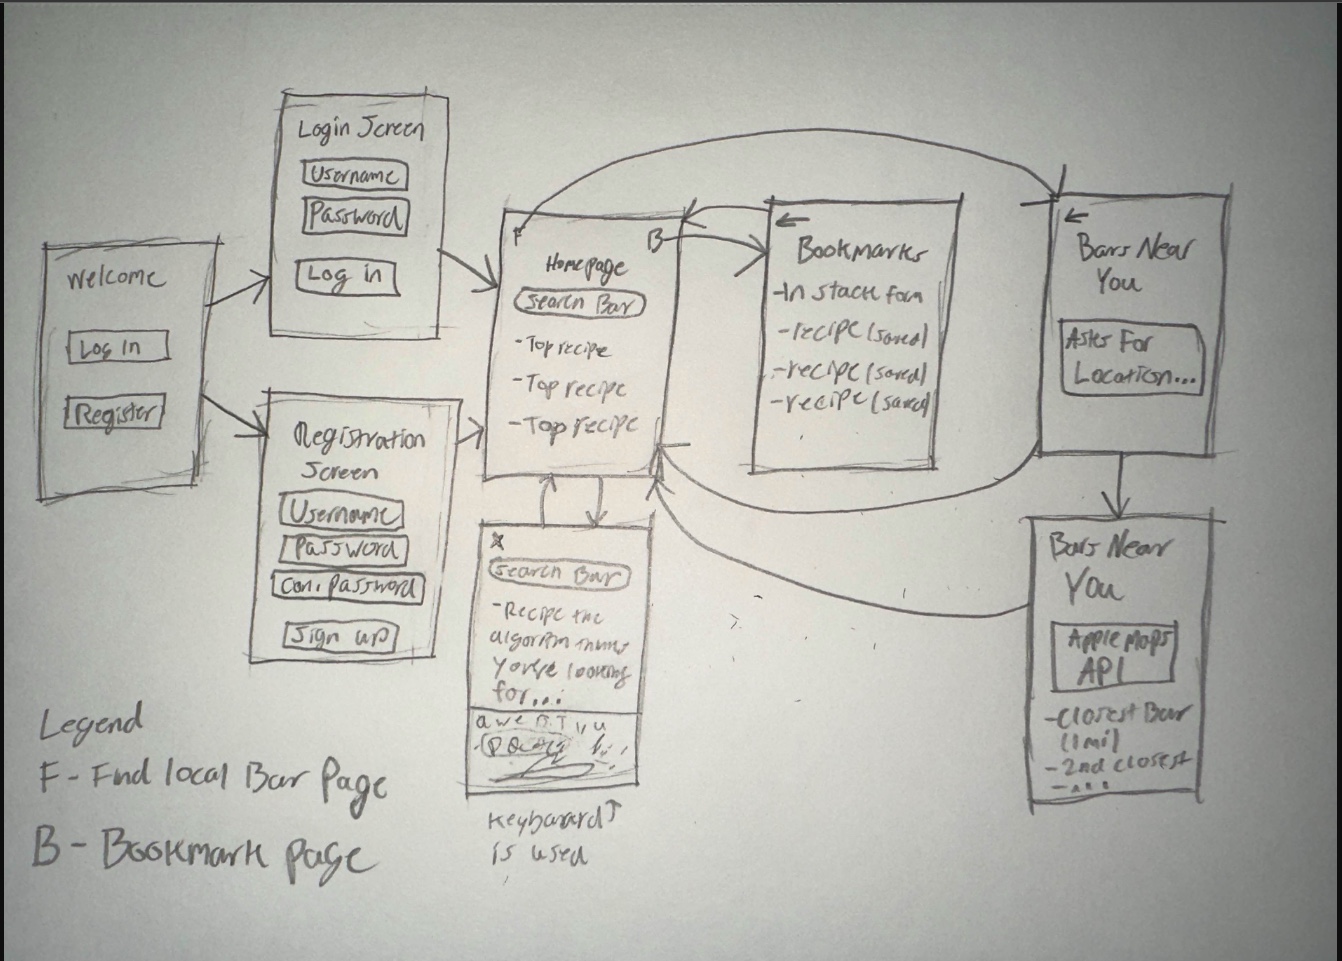 Welcome
Log in
Register
Login Screen
Username
Password
Log in
Registration
Screen
Username
Password
Con. Password
Sign up
F
B
Homepage
Search Bar
- Top recipe
- Top recipe
- Top recipe
X
Search Bar
- Recipe the
algorithm thinks
you're looking
for...
Keyboard ↑
is used
←
Bookmarks
- In stack form
- recipe (saved)
- recipe (saved)
- recipe (saved)
←
Bars Near
You
Asks For
Location...
Bars Near
You
Apple Maps
API
- Closest Bar
(1mi)
- 2nd closest
- ...
Legend
F - Find local Bar Page
B - Bookmark page